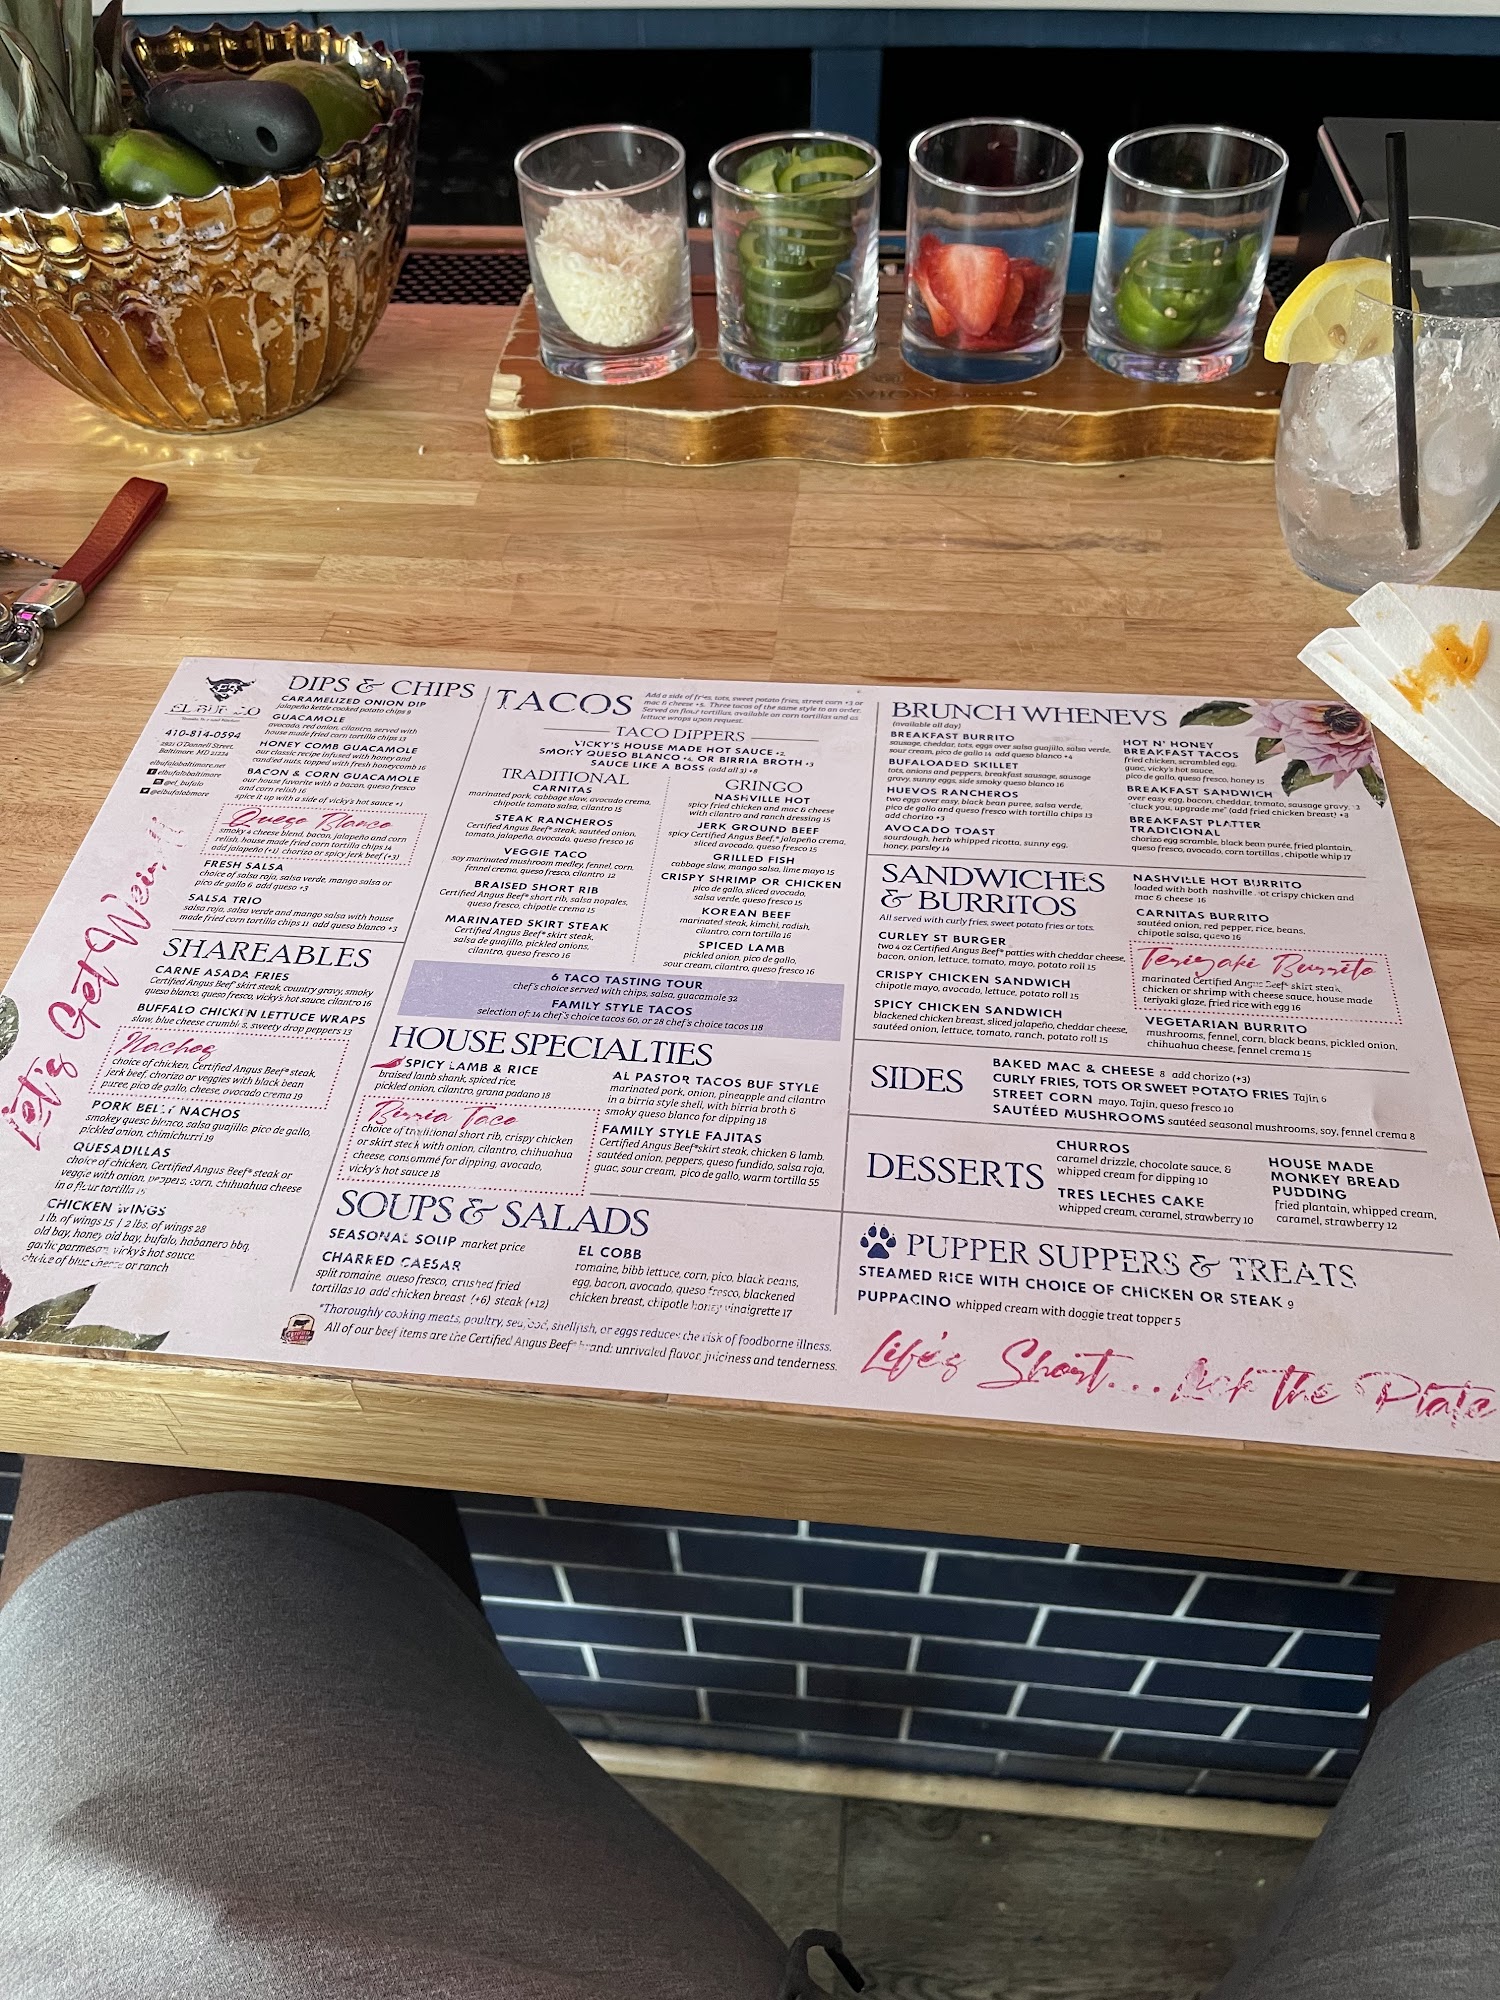 AVION
EL BUFALO
410-814-0594
2921 O'Donnell Street,
Baltimore, MD 21224
elbufalobaltimore.net
elbufalobaltimore
@el_bufalo
@elbufalobmore
Let's Get
DIPS & CHIPS
CARAMELIZED ONION DIP
jalapeño kettle cooked potato chips 9
GUACAMOLE
avocado, red onion, cilantro, served with
house made fried corn tortilla chips 13
HONEY COMB GUACAMOLE
our classic recipe infused with honey and
candied nuts, topped with fresh honeycomb 16
BACON & CORN GUACAMOLE
our house favorite with a bacon, queso fresco
and corn relish 16
spice it up with a side of vicky's hot sauce +1
Queso Blanco
smoky 4 cheese blend, bacon, jalapeño and corn
relish, house made fried corn tortilla chips 14
add jalapeño (+1) chorizo or spicy jerk beef (+3)
FRESH SALSA
choice of salsa roja, salsa verde, mango salsa or
pico de gallo 6 add queso +3
SALSA TRIO
salsa roja, salsa verde and mango salsa with house
made fried corn tortilla chips 11 add queso blanco +3
SHAREABLES
CARNE ASADA FRIES
Certified Angus Beef® skirt steak, country gravy, smoky
queso blanco, queso fresco, vicky's hot sauce, cilantro 16
BUFFALO CHICKEN LETTUCE WRAPS
slaw, blue cheese crumbles, sweety drop peppers 13
Nachos
choice of chicken, Certified Angus Beef® steak,
jerk beef, chorizo or veggies with black bean
puree, pico de gallo, cheese, avocado crema 19
PORK BELLY NACHOS
smokey queso blanco, salsa guajillo, pico de gallo,
pickled onion, chimichurri 19
QUESADILLAS
choice of chicken, Certified Angus Beef® steak or
veggie with onion, peppers, corn, chihuahua cheese
in a flour tortilla 15
CHICKEN WINGS
1 lb. of wings 15 | 2 lbs. of wings 28
old bay, honey old bay, bufalo, habanero bbq,
garlic parmesan, vicky's hot sauce.
choice of blue cheese or ranch
TACOS
Add a side of fries, tots, sweet potato fries, street corn +3 or
mac & cheese +5. Three tacos of the same style to an order.
Served on flour tortillas, available on corn tortillas and as
lettuce wraps upon request.
TACO DIPPERS
VICKY'S HOUSE MADE HOT SAUCE +2,
SMOKY QUESO BLANCO +4, OR BIRRIA BROTH +3
SAUCE LIKE A BOSS (add all 3) +8
TRADITIONAL
CARNITAS
marinated pork, cabbage slaw, avocado crema,
chipotle tomato salsa, cilantro 15
STEAK RANCHEROS
Certified Angus Beef® steak, sautéed onion,
tomato, jalapeño, avocado, queso fresco 16
VEGGIE TACO
soy marinated mushroom medley, fennel, corn,
fennel crema, queso fresco, cilantro 12
BRAISED SHORT RIB
Certified Angus Beef® short rib, salsa nopales,
queso fresco, chipotle crema 15
MARINATED SKIRT STEAK
Certified Angus Beef® skirt steak,
salsa de guajillo, pickled onions,
cilantro, queso fresco 16
GRINGO
NASHVILLE HOT
spicy fried chicken and mac & cheese
with cilantro and ranch dressing 15
JERK GROUND BEEF
spicy Certified Angus Beef,® jalapeño crema,
sliced avocado, queso fresco 15
GRILLED FISH
cabbage slaw, mango salsa, lime mayo 15
CRISPY SHRIMP OR CHICKEN
pico de gallo, sliced avocado,
salsa verde, queso fresco 15
KOREAN BEEF
marinated steak, kimchi, radish,
cilantro, corn tortilla 16
SPICED LAMB
pickled onion, pico de gallo,
sour cream, cilantro, queso fresco 16
6 TACO TASTING TOUR
chef's choice served with chips, salsa, guacamole 32
FAMILY STYLE TACOS
selection of: 14 chef's choice tacos 60, or 28 chef's choice tacos 118
HOUSE SPECIALTIES
SPICY LAMB & RICE
braised lamb shank, spiced rice,
pickled onion, cilantro, grana padano 18
Birria Taco
choice of traditional short rib, crispy chicken
or skirt steak with onion, cilantro, chihuahua
cheese, consommé for dipping, avocado,
vicky's hot sauce 18
AL PASTOR TACOS BUF STYLE
marinated pork, onion, pineapple and cilantro
in a birria style shell, with birria broth &
smoky queso blanco for dipping 18
FAMILY STYLE FAJITAS
Certified Angus Beef® skirt steak, chicken & lamb,
sautéed onion, peppers, queso fundido, salsa roja,
guac, sour cream, pico de gallo, warm tortilla 55
SOUPS & SALADS
SEASONAL SOUP market price
CHARRED CAESAR
split romaine, queso fresco, crushed fried
tortillas 10 add chicken breast (+6) steak (+12)
EL COBB
romaine, bibb lettuce, corn, pico, black beans,
egg, bacon, avocado, queso fresco, blackened
chicken breast, chipotle honey vinaigrette 17
*Thoroughly cooking meats, poultry, seafood, shellfish, or eggs reduces the risk of foodborne illness.
All of our beef items are the Certified Angus Beef® brand: unrivaled flavor, juiciness and tenderness.
BRUNCH WHENEVS
(available all day)
BREAKFAST BURRITO
sausage, cheddar, tots, eggs over salsa guajillo, salsa verde,
sour cream, pico de gallo 14 add queso blanco +4
BUFALOADED SKILLET
tots, onions and peppers, breakfast sausage, sausage
gravy, sunny eggs, side smoky queso blanco 16
HUEVOS RANCHEROS
two eggs over easy, black bean puree, salsa verde,
pico de gallo and queso fresco with tortilla chips 13
add chorizo +3
AVOCADO TOAST
sourdough, herb whipped ricotta, sunny egg,
honey, parsley 14
HOT N' HONEY
BREAKFAST TACOS
fried chicken, scrambled egg,
guac, vicky's hot sauce,
pico de gallo, queso fresco, honey 15
BREAKFAST SANDWICH
over easy egg, bacon, cheddar, tomato, sausage gravy,
"cluck you, upgrade me" (add fried chicken breast) +8
BREAKFAST PLATTER
TRADICIONAL
chorizo egg scramble, black bean purée, fried plantain,
queso fresco, avocado, corn tortillas, chipotle whip 17
SANDWICHES
& BURRITOS
All served with curly fries, sweet potato fries or tots.
CURLEY ST BURGER
two 4 oz Certified Angus Beef® patties with cheddar cheese,
bacon, onion, lettuce, tomato, mayo, potato roll 15
CRISPY CHICKEN SANDWICH
chipotle mayo, avocado, lettuce, potato roll 15
SPICY CHICKEN SANDWICH
blackened chicken breast, sliced jalapeño, cheddar cheese,
sautéed onion, lettuce, tomato, ranch, potato roll 15
NASHVILLE HOT BURRITO
loaded with both nashville hot crispy chicken and
mac & cheese 16
CARNITAS BURRITO
sautéed onion, red pepper, rice, beans,
chipotle salsa, queso 16
Teriyaki Burrito
marinated Certified Angus Beef® skirt steak,
chicken or shrimp with cheese sauce, house made
teriyaki glaze, fried rice with egg 16
VEGETARIAN BURRITO
mushrooms, fennel, corn, black beans, pickled onion,
chihuahua cheese, fennel crema 15
SIDES
BAKED MAC & CHEESE 8 add chorizo (+3)
CURLY FRIES, TOTS OR SWEET POTATO FRIES Tajin 6
STREET CORN mayo, Tajin, queso fresco 10
SAUTÉED MUSHROOMS sautéed seasonal mushrooms, soy, fennel crema 8
DESSERTS
CHURROS
caramel drizzle, chocolate sauce, &
whipped cream for dipping 10
TRES LECHES CAKE
whipped cream, caramel, strawberry 10
HOUSE MADE
MONKEY BREAD
PUDDING
fried plantain, whipped cream,
caramel, strawberry 12
PUPPER SUPPERS & TREATS
STEAMED RICE WITH CHOICE OF CHICKEN OR STEAK 9
PUPPACINO whipped cream with doggie treat topper 5
Life's Short... Lick the Plate